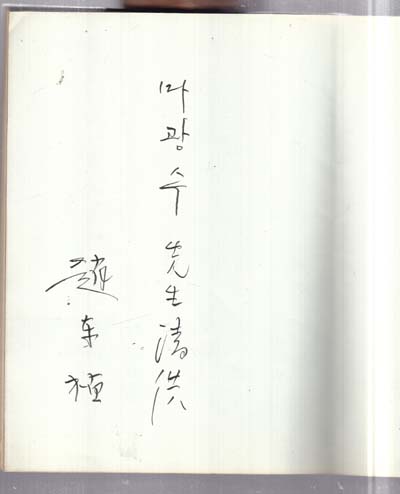 마광수 先生 清供
趙東植